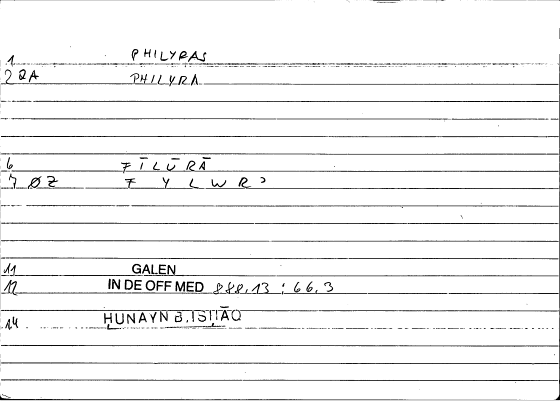 1 PHILYRAS
2 QA PHILYRA
6 FĪLŪRĀ
7 ØZ F Y L W R ɔ
11 GALEN
12 IN DE OFF MED 888,13 ; 66,3
14 HUNAYN B. ISḤĀQ